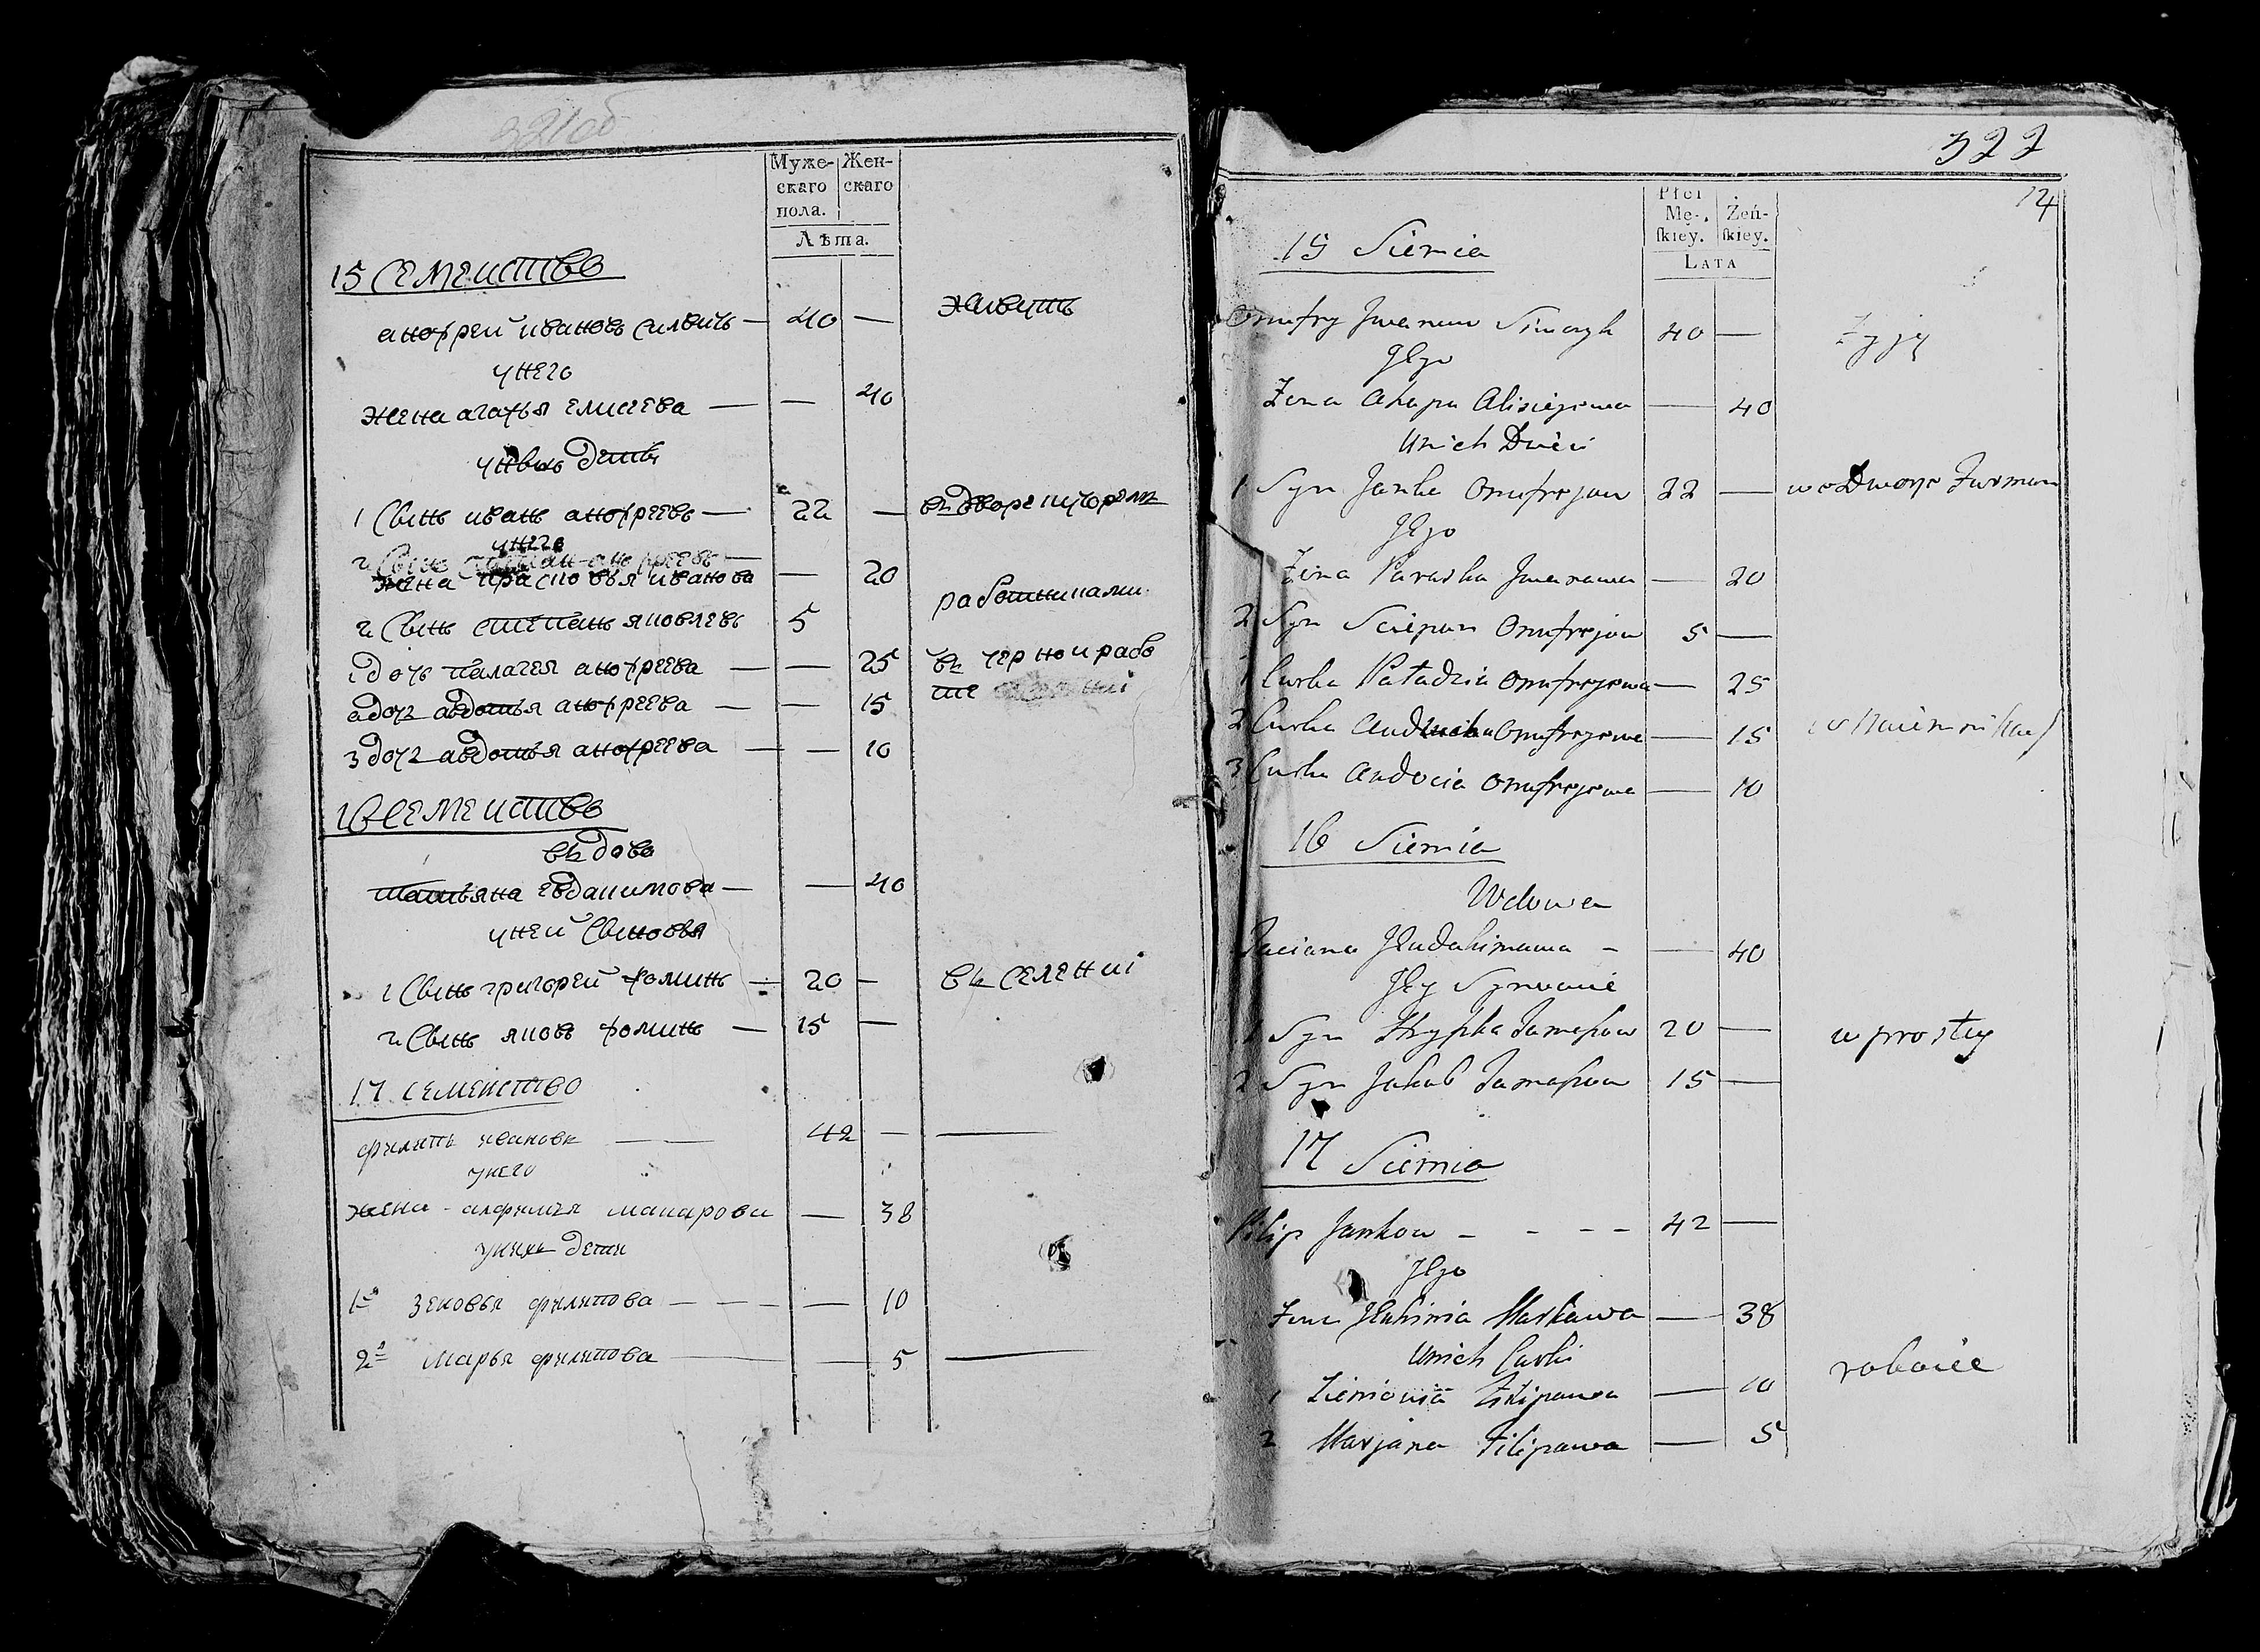 321 об
Муже-
скаго
пола.
Жен-
скаго
Лѣта.
15 Семеиство
анофреи ивановъ силвичъ — 40 —
живутъ
унего
жена агафья елисеева — — 40
унвыхъ дети
1 Сынъ иванъ анофреевъ — 22 —
въ дворе
унего
жена прасковья иванова — 20
2 Сынъ степанъ яковлевъ 5
работниками
1 дочь палагея анофреева — — 25
въ чернои рабо
те
2 дочь авдотья анофреева — — 15
3 дочь авдотья анофреева — — 10
16 Семеиство
въдова
татьяна евдакимова — — 40
унеи Сыновья
1 Сынъ григореи фоминъ — 20 —
въ селениі
2 Сынъ яковъ фоминъ — 15 —
17 семейство
филипъ ивановъ — — 42 — —
унего
жена - алфимья макарова — 38
унихъ дети
1я зеновья филипова — — — — 10
2я марья филипова — — 5 —
322
14
Płci
Mę-
ſkiey.
Żeń-
ſkiey.
Lata
15 Siemia
Onufry Iwanow 40 —
Żyją
Jego
Żona Ahapa Alisiejewa — 40
Unich Dzieci
1 Syn Janka Onufrejow 22 —
we Dworze Furman
Jego
Żona Paraska Iwanawa — 20
2 Syn Sciepan Onufrejow 5 —
1 Curka Paładzia Onufrejewa — 25
2 Curka Onufrejewa — 15
3 Curka Audocia Onufrejewa — 10
16 Siemia
Wdowa
Taciana Jeudakimawa — — 40
Jey Synowie
1 Syn Hrypka Tamaszow 20 —
w prostey
2 Syn Jakub Tamaszow 15 —
17 Siemia
Filip Jankow - - - - 42 —
Jego
Żona Jeuhinia Markawa — 38
Unich Curki
robocie
1 Zienowia Filipawa — 10
2 Marjana Filipawa — 5